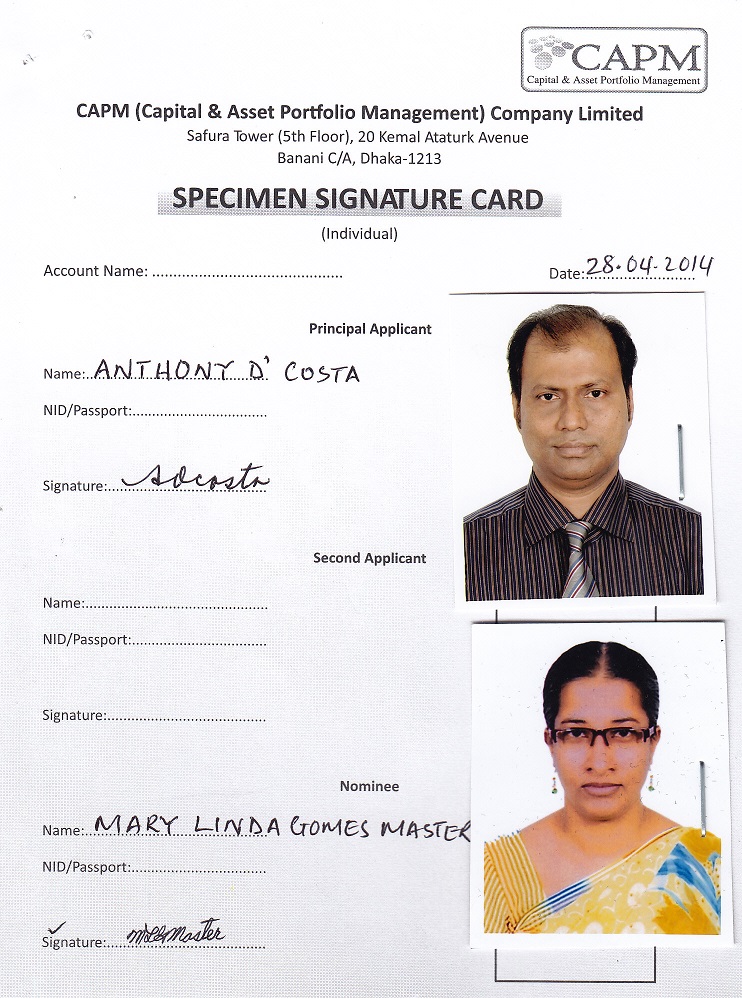 CAPM
Capital & Asset Portfolio Management
CAPM (Capital & Asset Portfolio Management) Company Limited
Safura Tower (5th Floor), 20 Kemal Ataturk Avenue
Banani C/A, Dhaka-1213
SPECIMEN SIGNATURE CARD
(Individual)
Account Name: ............................................
Date: 28.04.2014
Principal Applicant
Name: ANTHONY D' COSTA
NID/Passport:................................
Signature: Adcosta
Second Applicant
Name:...........................................
NID/Passport:................................
Signature:.....................................
Nominee
Name: MARY LINDA GOMES MASTER
NID/Passport:................................
✓
Signature: mLGMaster